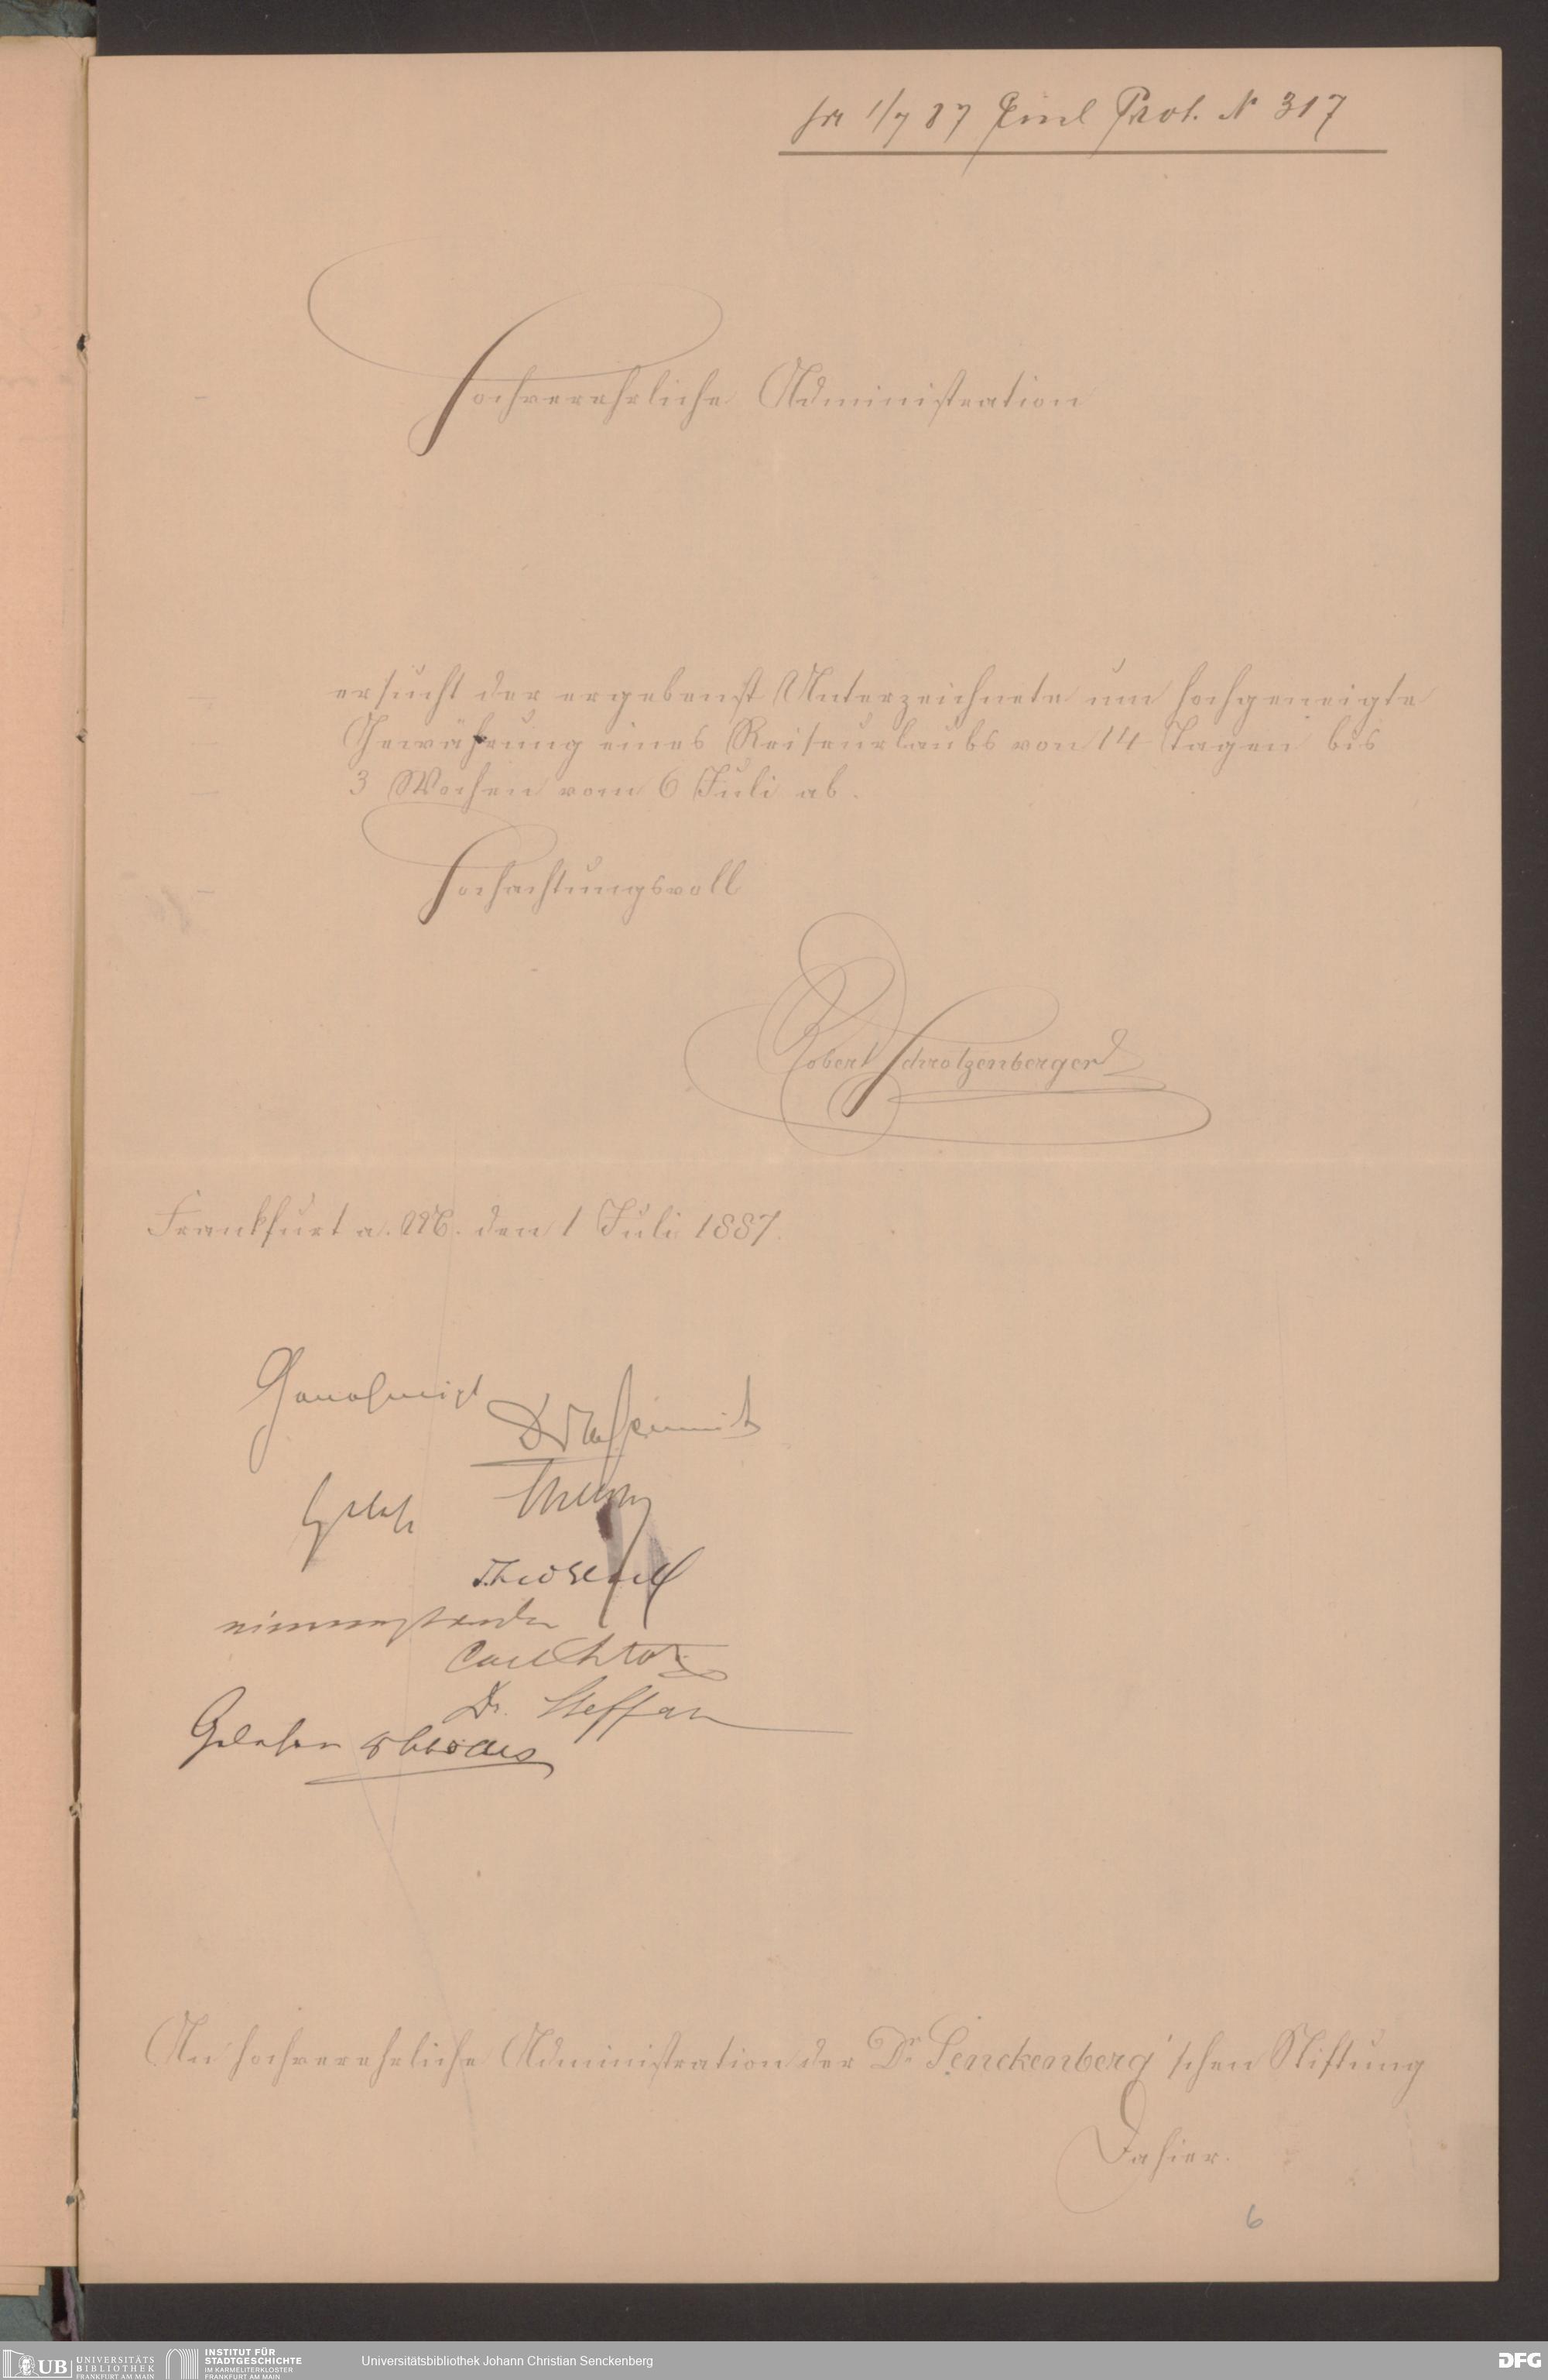 1/7 87 Einl Prot. N 317
Hochverehrliche Administration
ersucht der ergebenst Unterzeichnete um hochgeneigte
Gewährung eines Reiseurlaubs von 14 Tagen bis
3 Wochen vom 6 Juli ab.
Hochachtungsvoll
Robert Schrotzenberger
Frankfurt a. M. den 1 Juli 1887.
Genehmigt
einverstanden
Dr. Steffan
Gelesen
An hochverehrliche Administration der Dr. Senckenberg'schen Stiftung
Dahier.
6
UB UNIVERSITÄTS
BIBLIOTHEK
FRANKFURT AM MAIN
INSTITUT FÜR
STADTGESCHICHTE
IM KARMELITERKLOSTER
FRANKFURT AM MAIN
Universitätsbibliothek Johann Christian Senckenberg
DFG